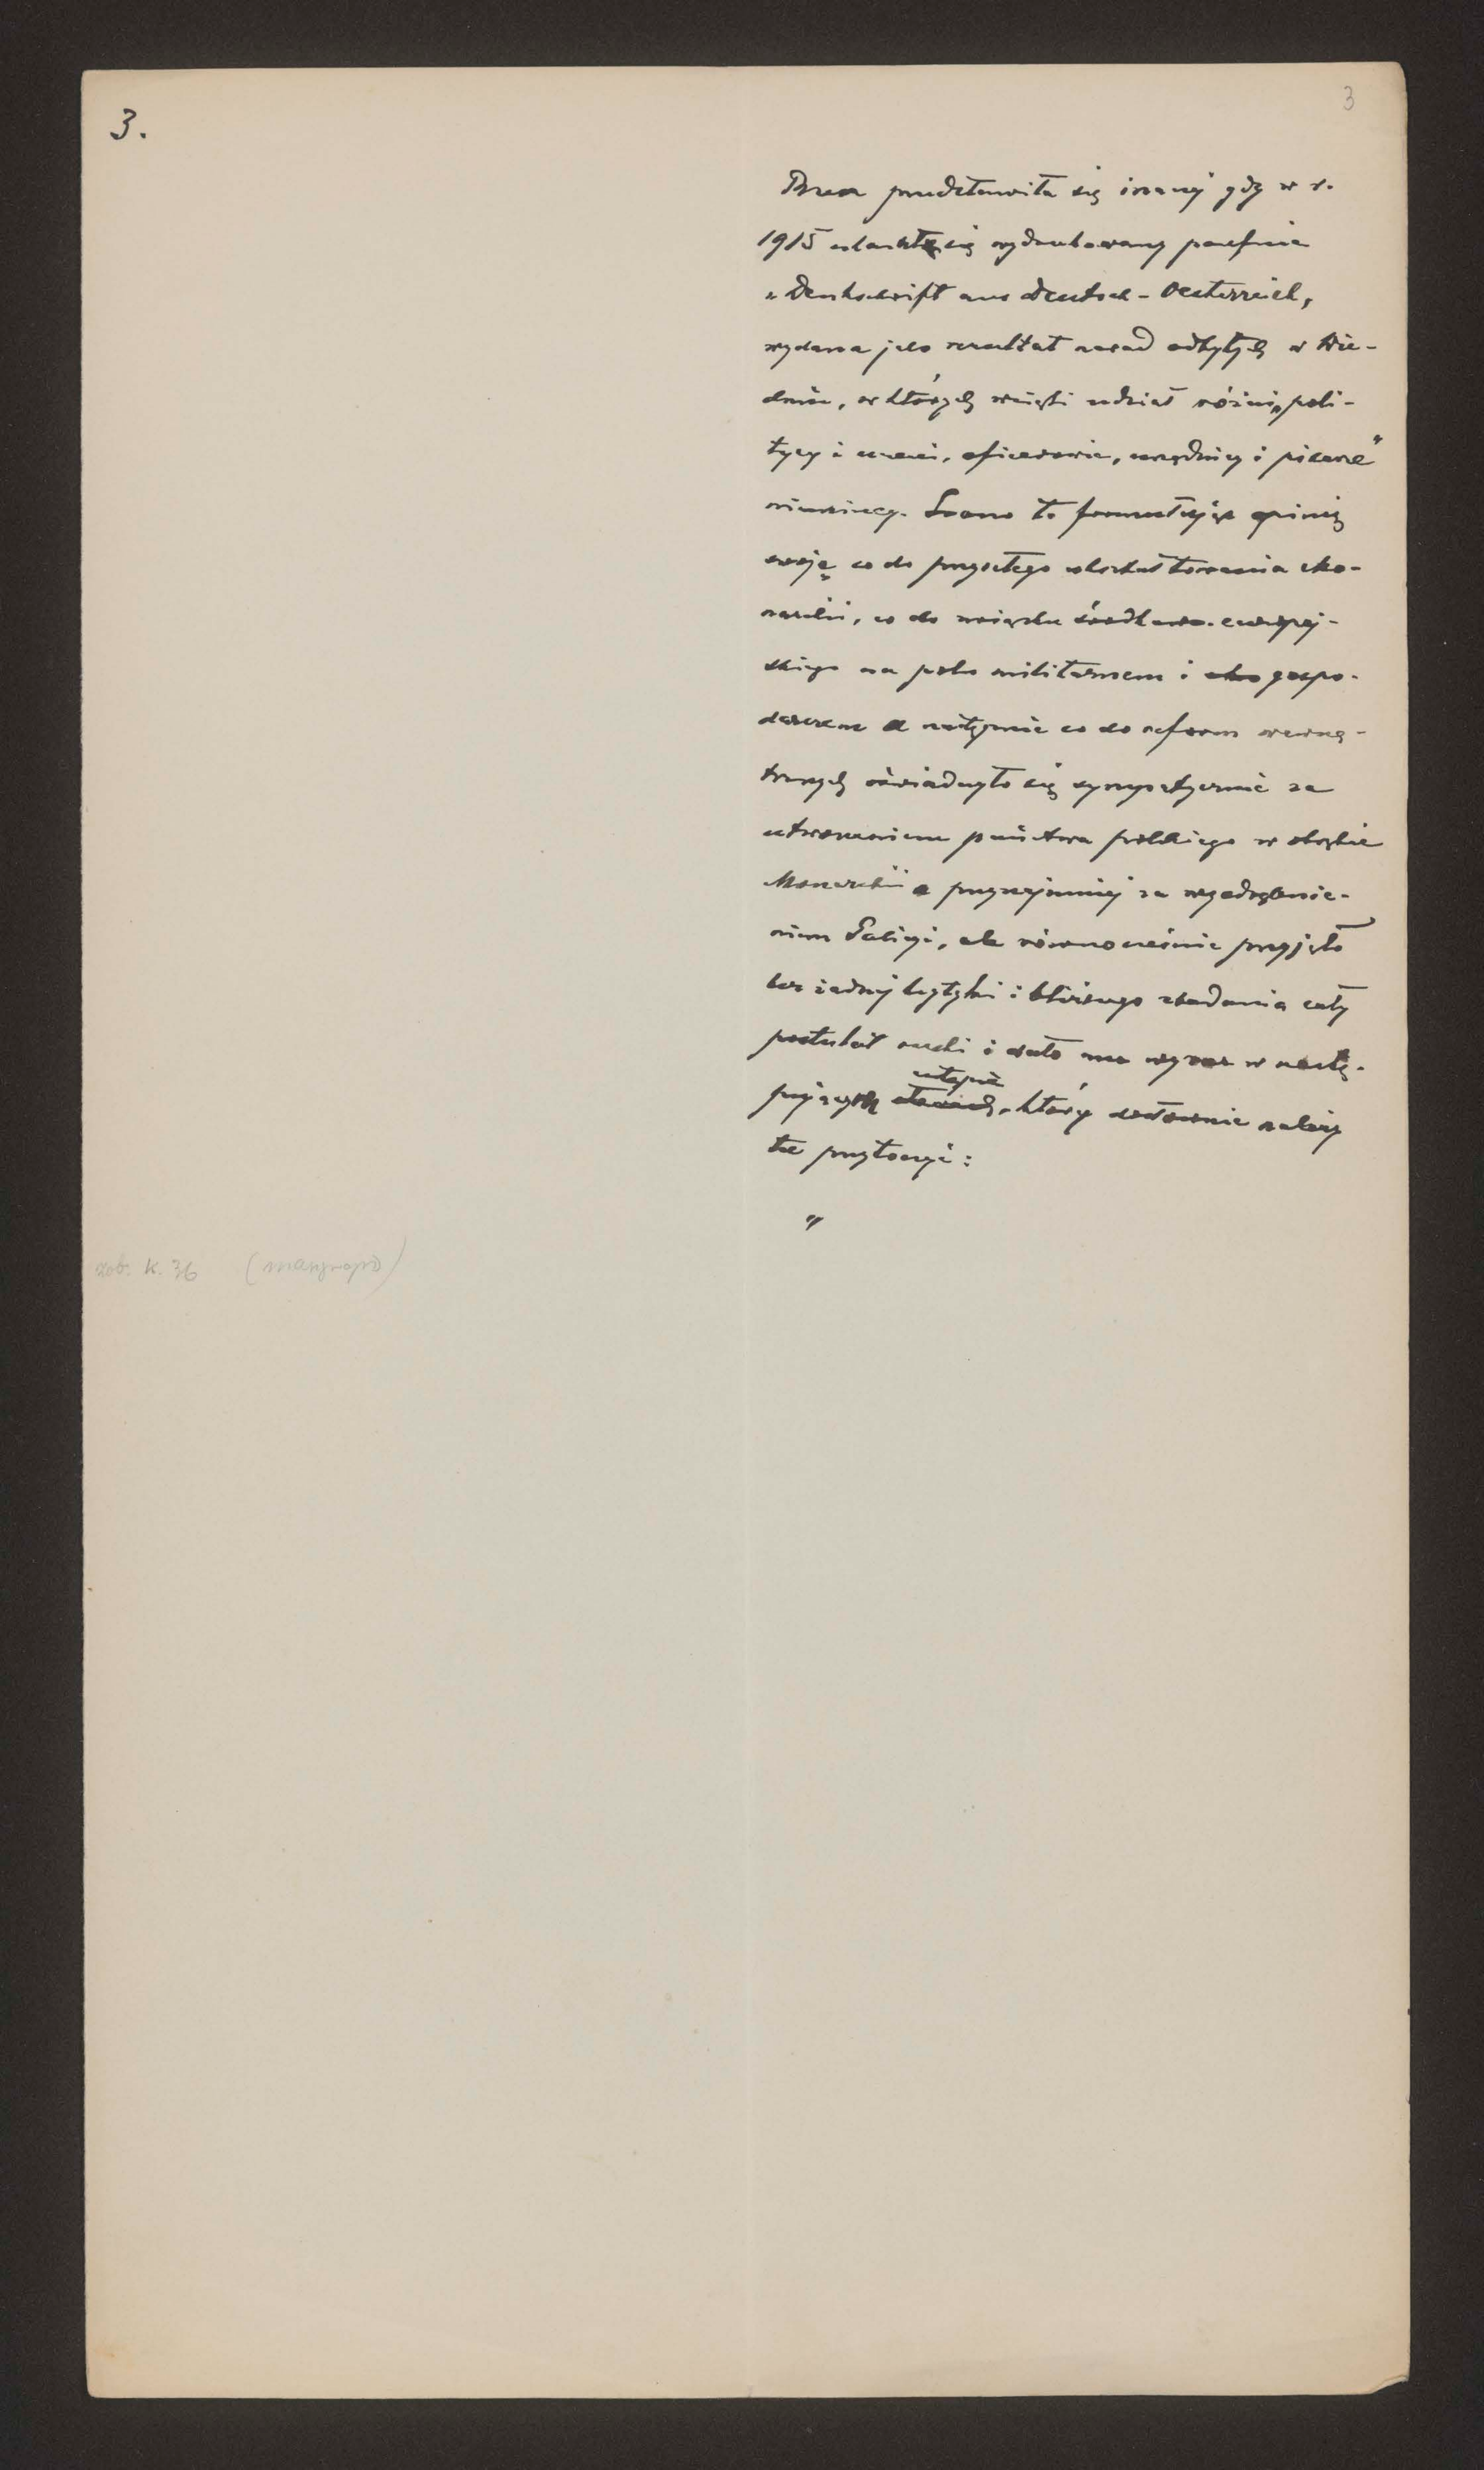 3.
3
Rzecz przedstawiła się inaczej gdy w r.
1915 ukazał się wydrukowany poufnie
„Denkschrift aus Deutsch-Oesterreich,
wydana jako rezultat narad odbytych w Wie-
dniu, w których wzięli udział różni „poli-
tycy i uczeni, oficerowie, urzędnicy i pisarze"
niemieccy. Grono to formułując opinię
swoję co do przyszłego ukształtowania
co do związku środkowo-europej-
skiego na polu militarnem i eko gospo-
darczem a następnie co do reform wewnę-
trznych oświadczyło się sympatycznie za
utworzeniem państwa polskiego w obrębie
Monarchii a przynajmniej za wyodrębnie-
niem Galicyi, ale równocześnie przyjęło
bez żadnej krytyki i bliższego zbadania cały
postulat ruski i dało mu wyraz w nastę-
pującym ustępie, który dosłownie należy
tu przytoczyć:
„
zob. k. 36 (maszynopis)